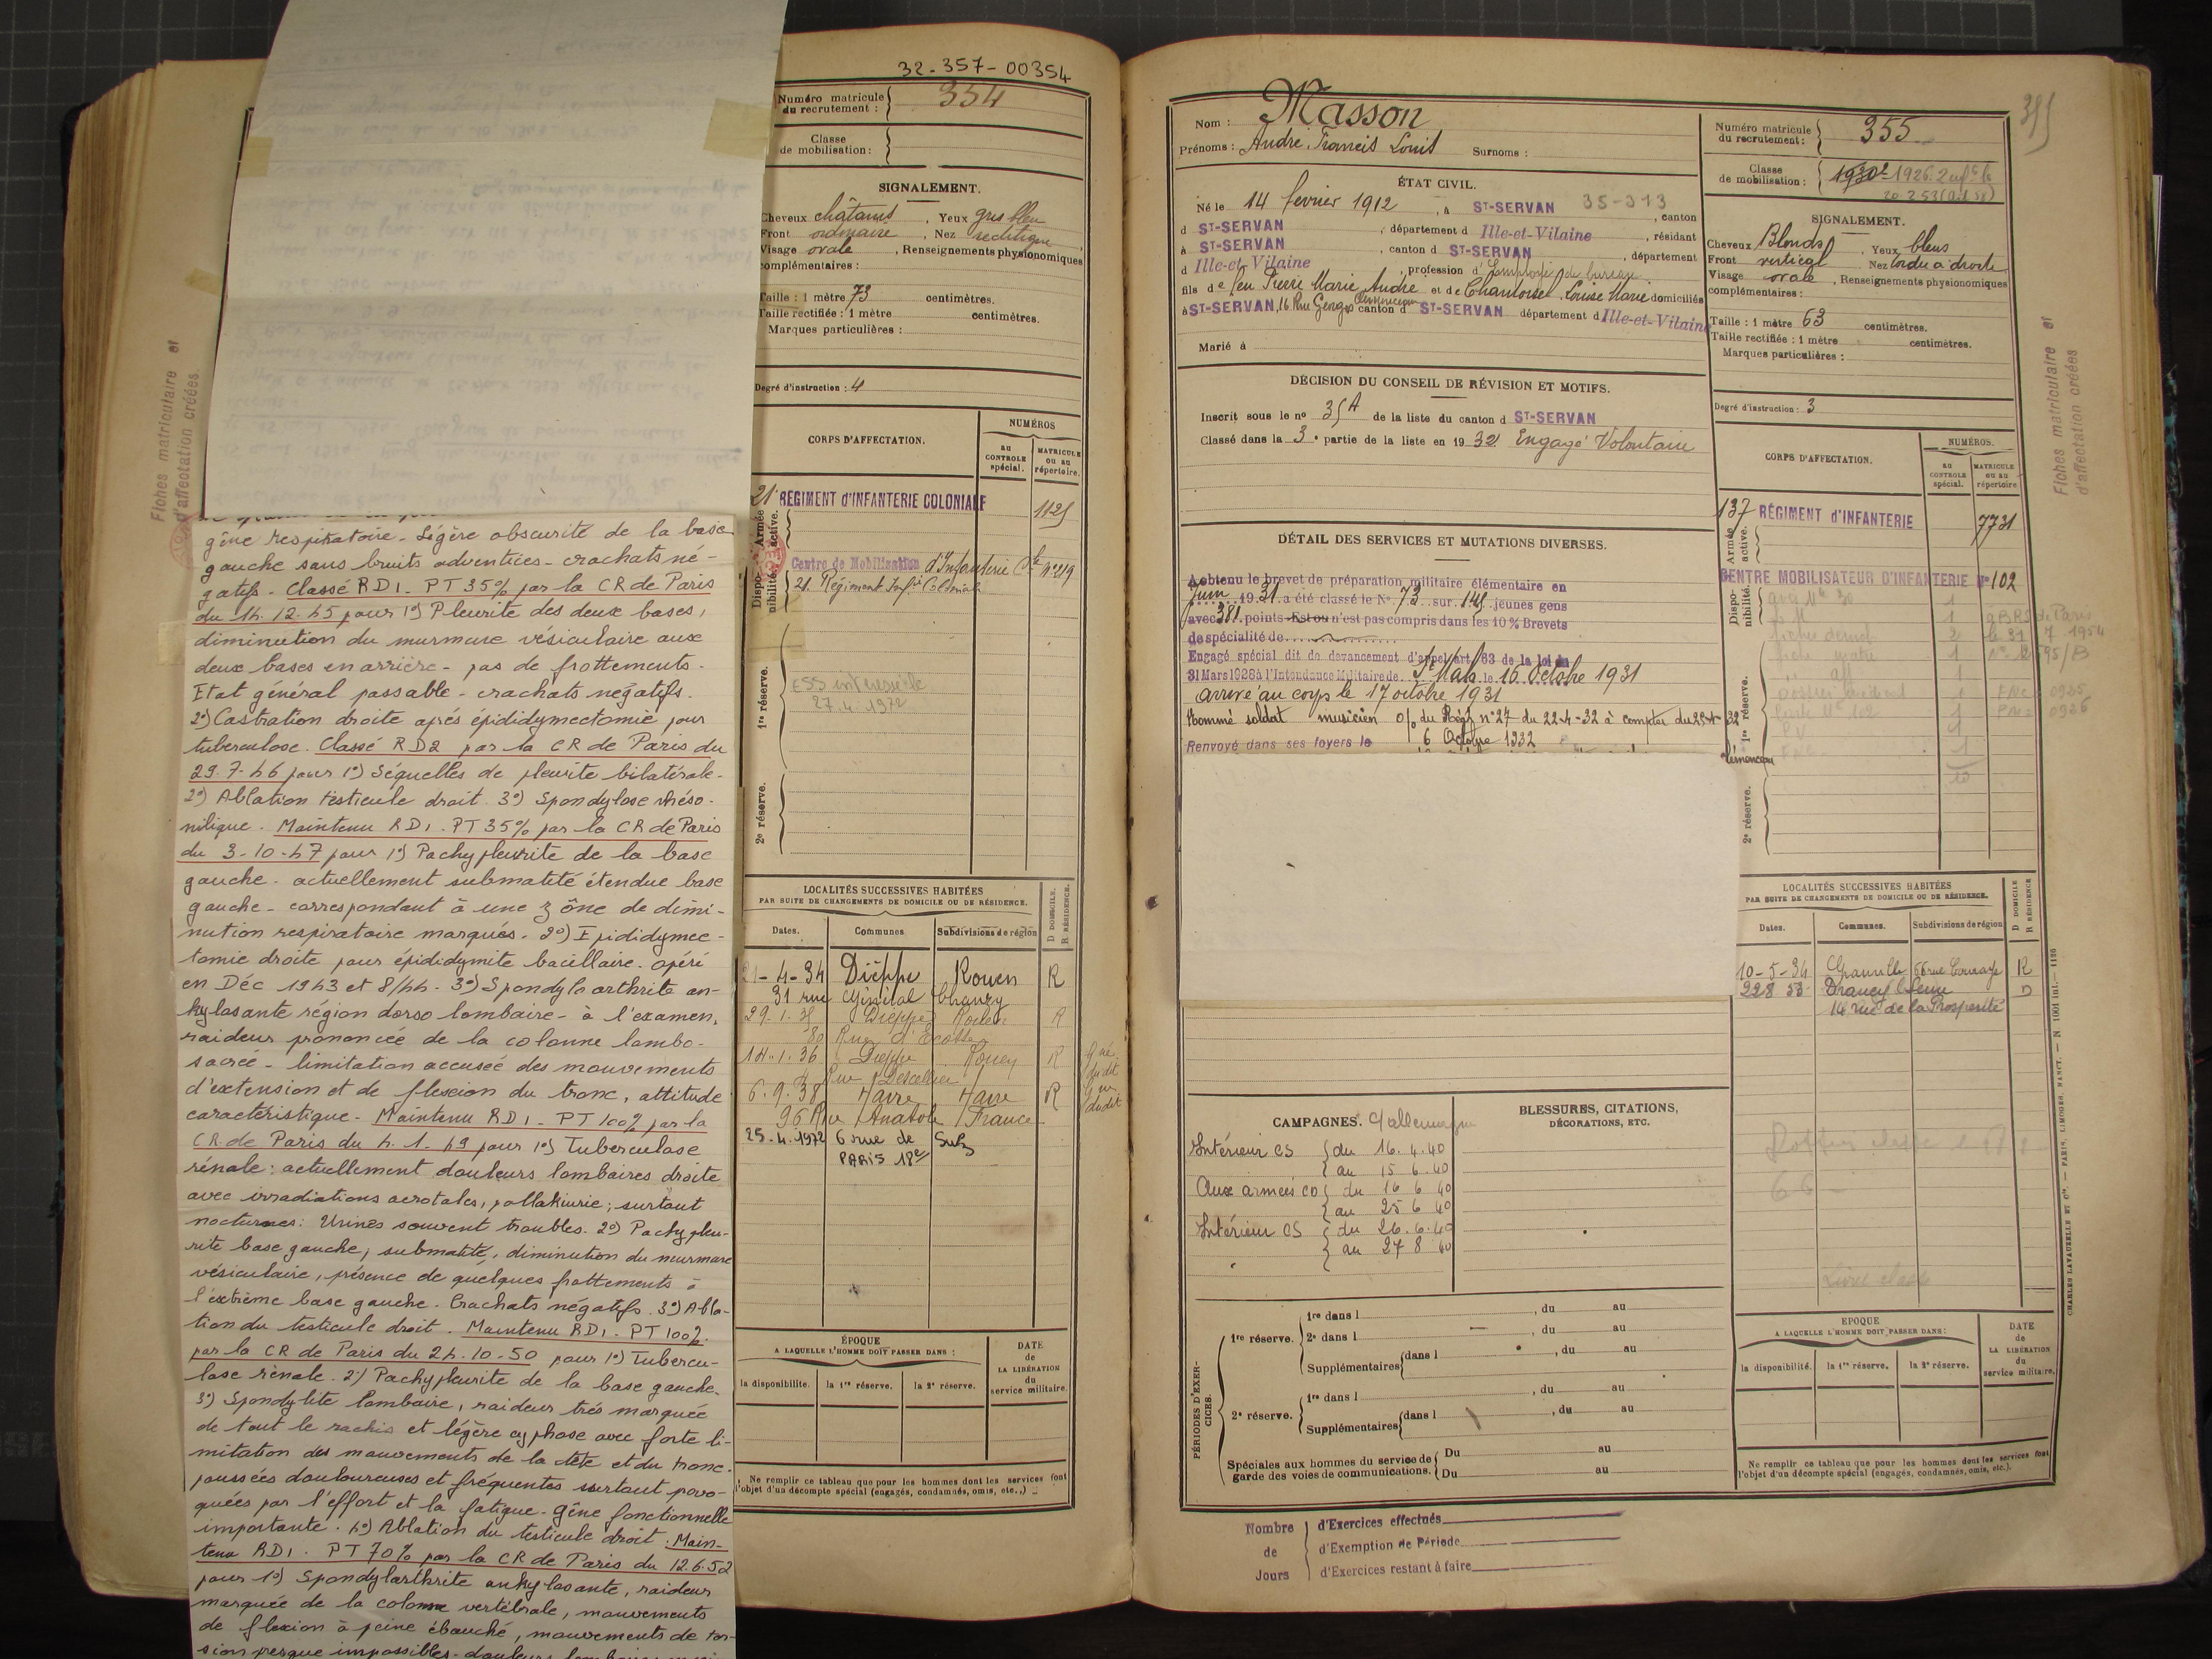 32-357-00354
Numéro matricule du recrutement : 354
Classe de mobilisation :
SIGNALEMENT.
Cheveux châtains, Yeux gris bleu
Front ordinaire, Nez rectiligne
Visage ovale, Renseignements physionomiques
complémentaires :
Taille : 1 mètre 73 centimètres.
Taille rectifiée : 1 mètre centimètres.
Marques particulières :
Degré d'instruction : 4
CORPS D'AFFECTATION.
NUMÉROS
au CONTROLE spécial.
MATRICULE ou au répertoire.
Armée active.
21 RÉGIMENT d'INFANTERIE COLONIALE 1125
Dispo- nibilité.
Centre de Mobilisation d'Infanterie Cle n° 219
21. Régiment Infie Coloniale
1re réserve.
27.4.1972
2e réserve.
LOCALITÉS SUCCESSIVES HABITÉES
PAR SUITE DE CHANGEMENTS DE DOMICILE OU DE RÉSIDENCE.
D DOMICILE. R RÉSIDENCE.
Dates. Communes. Subdivisions de région
21-4-34 Dieppe Rouen R
31 rue Général Chanzy
29.1.35 Dieppe Rouen R
80 Rue d'Ecosse
14.1.36 Dieppe Rouen R
Rue Descelliers
6.9.38 Havre Havre R
96 Rue Anatole France
25.4.1972 6 rue de Suez
PARIS 18e
ÉPOQUE
A LAQUELLE L'HOMME DOIT PASSER DANS :
DATE de LA LIBÉRATION du service militaire.
la disponibilité. la 1re réserve. la 2e réserve.
Ne remplir ce tableau que pour les hommes dont les services font
l'objet d'un décompte spécial (engagés, condamnés, omis, etc.,)
Fiches matriculaire et
d'affectation créées
gêne respiratoire - Légère obscurité de la base
gauche sans bruits adventices - crachats né-
gatifs - Classé RD1 - PT 35% par la CR de Paris
du 14.12.45 pour 1°) Pleurite des deux bases,
diminution du murmure vésiculaire aux
deux bases en arrière - pas de frottements -
Etat général passable - crachats négatifs.
2°) Castration droite après épididymectomie pour
tuberculose. Classé RD2 par la CR de Paris du
29.7.46 pour 1°) Séquelles de pleurite bilatérale -
2°) Ablation testicule droit. 3°) Spondylose rhizo-
mélique. Maintenu RD1. PT 35% par la CR de Paris
du 3-10-47 pour 1°) Pachypleurite de la base
gauche - actuellement submatité étendue base
gauche - correspondant à une zône de dimi-
nution respiratoire marqués. 2°) Epididymec-
tomie droite pour épididymite bacillaire. opéré
en Déc 1943 et 8/44 - 3°) Spondylo arthrite an-
kylosante région dorso lombaire - à l'examen,
raideur prononcée de la colonne lombo-
sacrée - limitation accusée des mouvements
d'extension et de flexion du tronc, attitude
caractéristique - Maintenu RD1 - PT 100% par la
CR de Paris du 4.1.49 pour 1°) Tuberculose
rénale : actuellement douleurs lombaires droite
avec irradiations scrotales, pollakiurie ; surtout
nocturnes : Urines souvent troubles. 2°) Pachypleu-
rite base gauche, submatité, diminution du murmure
vésiculaire, présence de quelques frottements à
l'extrème base gauche. Crachats négatifs. 3°) Abla-
tion du testicule droit. Maintenu RD1 - PT 100%
par la CR de Paris du 24.10.50 pour 1°) Tubercu-
lose rénale. 2°) Pachypleurite de la base gauche.
3°) Spondylite lombaire, raideur très marquée
de tout le rachis et légère cyphose avec forte li-
mitation des mouvements de la tête et du tronc -
poussées douloureuses et fréquentes surtout provo-
quées par l'effort et la fatigue - Gêne fonctionnelle
importante. 4°) Ablation du testicule droit. Main-
tenu RD1. PT 70% par la CR de Paris du 12.6.52
pour 1°) Spondylarthrite ankylosante, raideur
marquée de la colonne vertébrale, mouvements
de flexion à peine ébauché, mouvements de tor-
sion presque impossibles - douleurs
Nom : Masson
Prénoms : André, Francis Louis Surnoms :
ÉTAT CIVIL.
Né le 14 février 1912, à ST-SERVAN 35-313, canton
d ST-SERVAN, département d Ille-et-Vilaine, résidant
à ST-SERVAN, canton d ST-SERVAN, département
d Ille-et-Vilaine, profession d'employé de bureau
fils de feu Pierre Marie André et de Chantoisel Louise Marie domiciliés
à ST-SERVAN, 16 Rue Georges Clemenceau canton d ST-SERVAN département d Ille-et-Vilaine
Marié à
DÉCISION DU CONSEIL DE RÉVISION ET MOTIFS.
Inscrit sous le n° 35A de la liste du canton d ST-SERVAN
Classé dans la 3e partie de la liste en 1932 Engagé Volontaire
DÉTAIL DES SERVICES ET MUTATIONS DIVERSES.
A obtenu le brevet de préparation militaire élémentaire en
Juin 1931. a été classé le N° 73 sur 145 jeunes gens
avec 381 points Est ou n'est pas compris dans les 10% Brevets
de spécialité de
Engagé spécial dit de devancement d'appel art. 63 de la loi du
31 Mars 1928 à l'Intendance Militaire de St Malo le 16 Octobre 1931
arrivé au corps le 17 octobre 1931
Nommé soldat musicien o/ du Régt n° 27 du 22-4-32 à compter du 25-4-32
Renvoyé dans ses foyers le 6 Octobre 1932
Clémenceau
CAMPAGNES. C/allemagne
BLESSURES, CITATIONS, DÉCORATIONS, ETC.
Intérieur CS du 16.4.40
au 15 6 40
Aux armées CD du 16 6 40
au 25 6 40
Intérieur CS du 26.6.40
au 27 8 40
PÉRIODES D'EXER- CICES.
1re réserve. 1re dans l , du au
2e dans l , du au
Supplémentaires dans l , du au
2e réserve. 1re dans l , du au
Supplémentaires dans l , du au
Spéciales aux hommes du service de garde des voies de communications. Du au
Du au
Nombre de Jours
d'Exercices effectués
d'Exemption de Période
d'Exercices restant à faire
355
Numéro matricule du recrutement : 355
Classe de mobilisation : 1930 1926
SIGNALEMENT.
Cheveux Blonds, Yeux bleus
Front vertical Nez tordu à droite
Visage ovale, Renseignements physionomiques
complémentaires :
Taille : 1 mètre 63 centimètres.
Taille rectifiée : 1 mètre centimètres.
Marques particulières :
Degré d'instruction : 3
CORPS D'AFFECTATION.
NUMÉROS.
au CONTROLE spécial.
MATRICULE ou au répertoire
Armée active.
137 RÉGIMENT d'INFANTERIE 7731
Dispo- nibilité.
CENTRE MOBILISATEUR D'INFANTERIE N° 102
1re réserve.
2e réserve.
LOCALITÉS SUCCESSIVES HABITÉES
PAR SUITE DE CHANGEMENTS DE DOMICILE OU DE RÉSIDENCE.
D DOMICILE R RÉSIDENCE
Dates. Communes. Subdivisions de région
10-5-34 Granville 66 rue Couraye R
22 8 53 Drancy Seine D
14 rue de la Prospérité
EPOQUE
A LAQUELLE L'HOMME DOIT PASSER DANS :
DATE de LA LIBÉRATION du service militaire.
la disponibilité. la 1re réserve. la 2e réserve.
Ne remplir ce tableau que pour les hommes dont les services font
l'objet d'un décompte spécial (engagés, condamnés, omis, etc.).
CHARLES LAVAUZELLE ET Cie. — PARIS, LIMOGES, NANCY. — N 1001 int.— 1126
Fiches matriculaire et
d'affectation créées